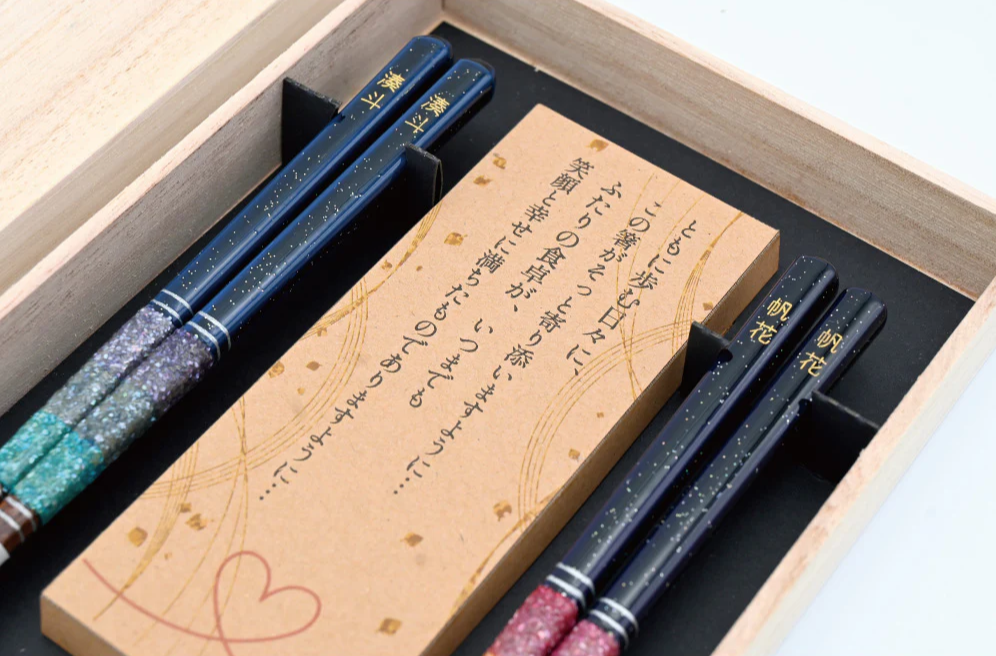 湊斗
湊斗
ともに歩む日々に、
この箸がそっと寄り添いますように…
ふたりの食卓が、いつまでも
笑顔と幸せに満ちたものでありますように…
帆花
帆花